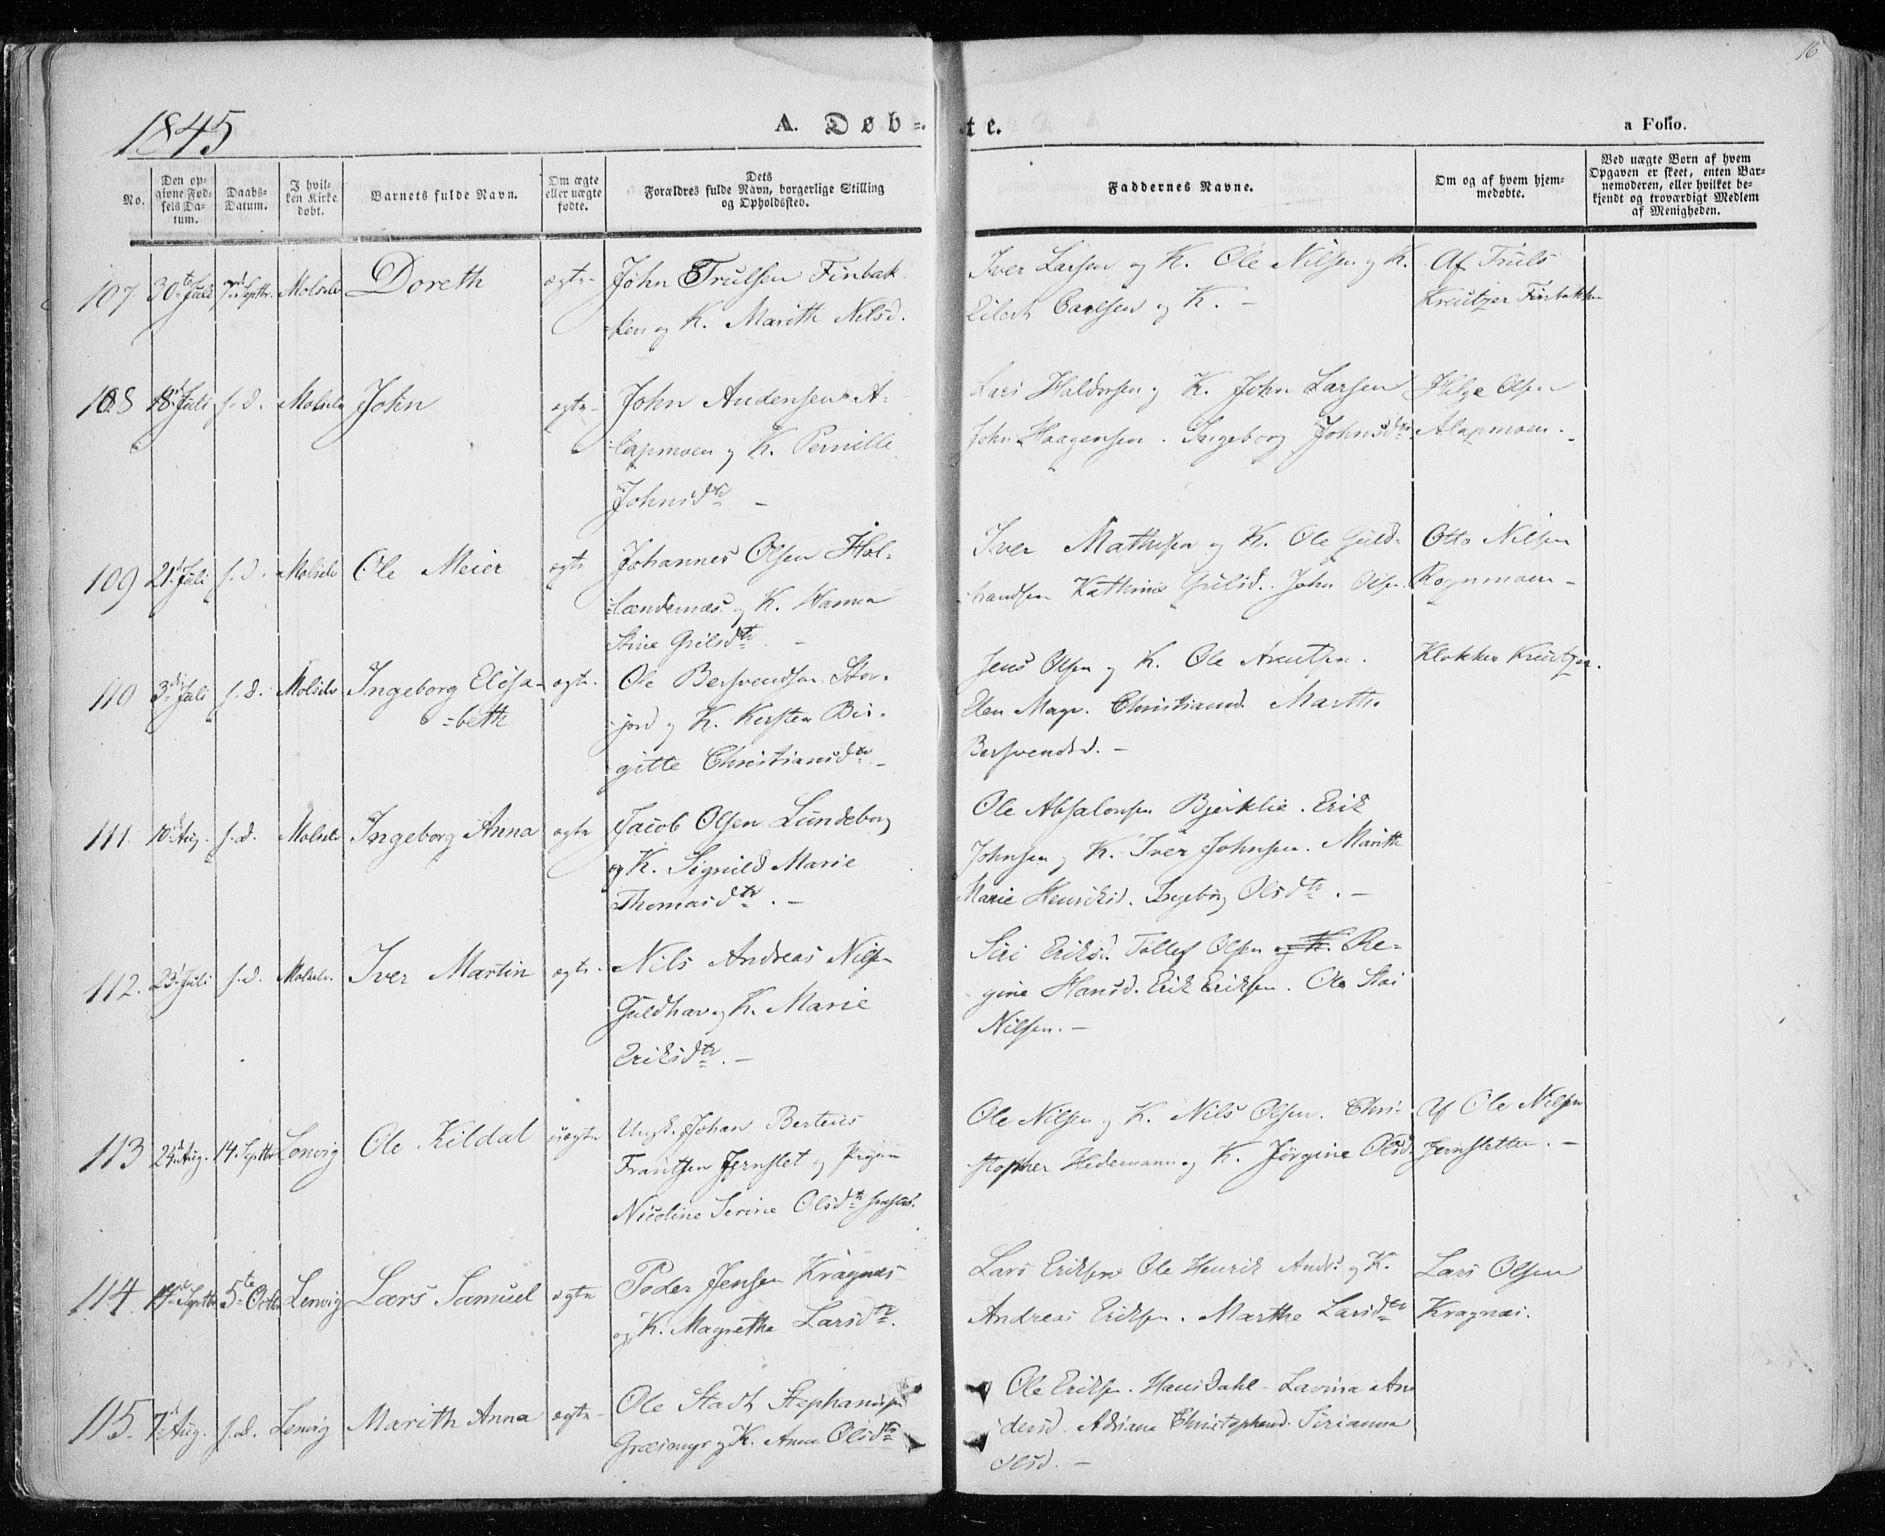 16
1845
A. Døb-
te.
a Folio.
No.
Den op-
givne Fød-
sels Da-
tum.
Daabs-
Datum.
I hvil-
ken Kirke
døbt.
Barnets fulde Navn.
Om ægte
eller uægte
fødte.
Dets
Forældres fulde Navn, borgerlige Stilling
og Opholdssted.
Faddernes Navne.
Om og af hvem hjem-
medøbte.
Ved uægte Børn af hvem
Opgaven er skeet, enten Bar-
nemoderen, eller hvilket be-
kjendt og troværdigt Medlem
af Menigheden.
107 30te Juli 7 Septbr. Molselv Doreth ægte
John Trulsen Finbak-
-ken og K. Marith Nilsd.
Iver Larsen og K. Ole Nilsen og K.
Eilert Carlsen og K. -
Af Truls
Kreutzer Finbakken
108 18 Juli s. d. Molselv John ægte
John Andersen A-
-lapmoen og K. Pernille
Johnsdtr -
Lars Haldorsen og K. John Larsen
John Haagensen. Ingeborg Johnsdtr
Helge Olsen
Alapmoen.
109 21 Juli s. d. Molselv Ole Meier ægte
Johannes Olsen Hol-
-lændernæs og K. Hanna
Stine Grilsdtr. -
Iver Mathisen og K. Ole Guld-
-brandsen Kathrine Grilsd. John Olsen
Otto Nilsen
Rognmoen -
110 3 Juli s. d. Molselv Ingeborg Elisa-
-beth ægte
Ole Bersvendsen Stor-
jord og K. Kirsten Bir-
gitte Christiansdtr -
Jens Olsen og K. Ole Arentsen.
Elen Magr. Christiansd. Marth.
Bersvendsd. -
Klokker Kreutzer.
111. 10 Aug. s. d. Molselv Ingeborg Anna ægte
Jacob Olsen Lundeborg
og K. Signild Marie
Thomasdtr. -
Ole Absalonsen Bjerklie. Erik
Johnsen og K. Iver Johnsen. Marith
Marie Henriksd. Ingeborg Olsdtr. -
112. 23 Juli s. d. Molselv. Iver Martin ægte
Nils Andreas Nilsen
Guldhav og K. Marie
Eriksdtr. -
Siri Eriksd. Tollef Olsen og K. Re-
gine Hansd. Erik Eriksen. Ole
Nilsen. -
113 24 Aug. 14. Septbr Lenvig Ole Kildal uægte
Ungk. Johan Berteus
Frantsen Jernslet og Pigen
Nicoline Serine Olsdtr
Ole Nilsen og K. Nils Olsen. Chri-
stopher Hedemann og K. Jørgine Olsd.
Af Ole Nilsen
Jernsletten. -
114. Septbr 5te Octbr Lenvig Lars Samuel ægte
Peder Jensen Kragnæs
og K. Magrethe Larsdtr.
Lars Eriksen Ole Henrik Anders. og K.
Andreas Eriksen. Marthe Larsdtr
Lars Olsen
Kragnæs.
115. 7 Aug. s. d. Lenvig Marith Anna ægte
Ole Stadt Stephansen
Græsmyr og K. Anna Olsdtr
Ole Eriksen. Hans Dahl - Lavina An-
dersd. Adriana Christophersd. Serianna
Olsd. -